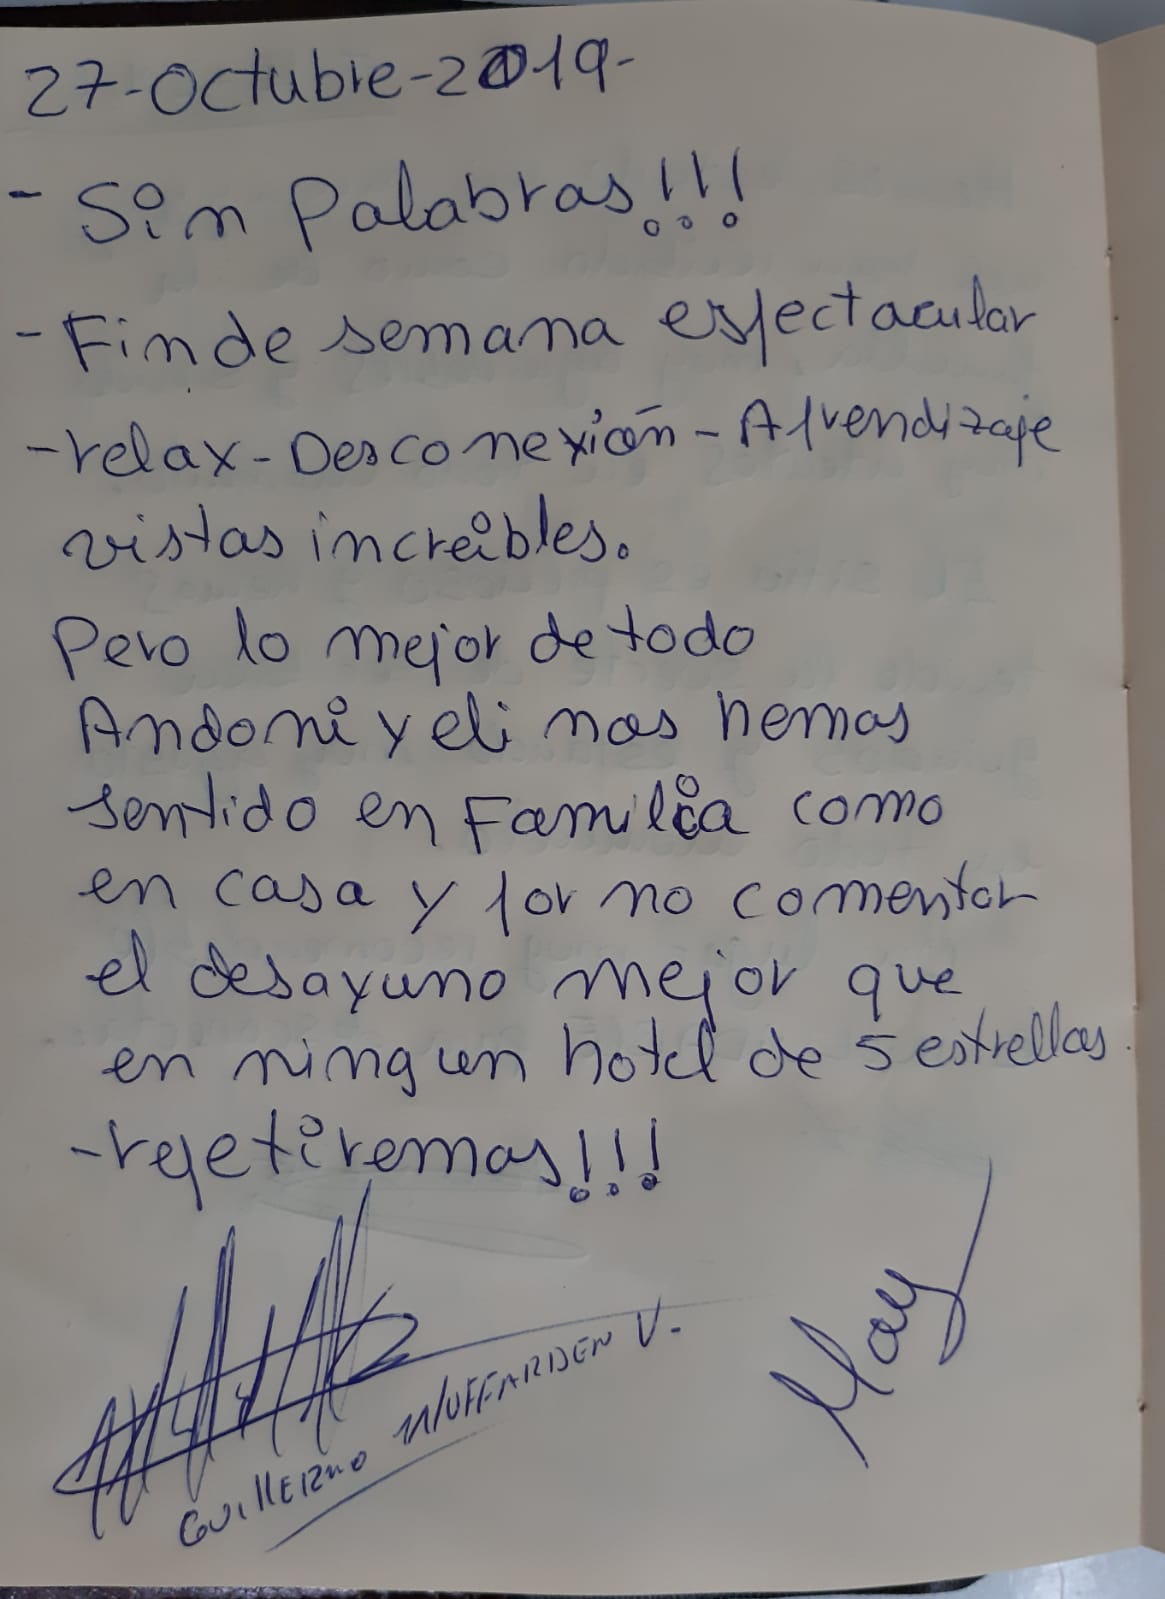 27-Octubre-2019-
- Sin Palabras!!!
- Fin de semana espectacular
- relax - Desconexión - Aprendizaje
vistas increibles.
Pero lo mejor de todo
Andoni y eli nos hemos
sentido en Familia como
en casa y por no comentar
el desayuno mejor que
en ningun hotel de 5 estrellas.
- repetiremos!!!
May
GUILLERMO MUFFARDEN V.-